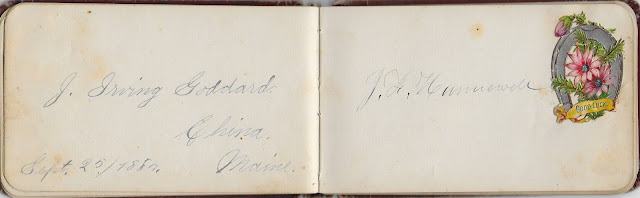 J. Irving Goddard
China,
Maine.
Sept. 25/1882.
J. H. Hunnewell
GOOD LUCK